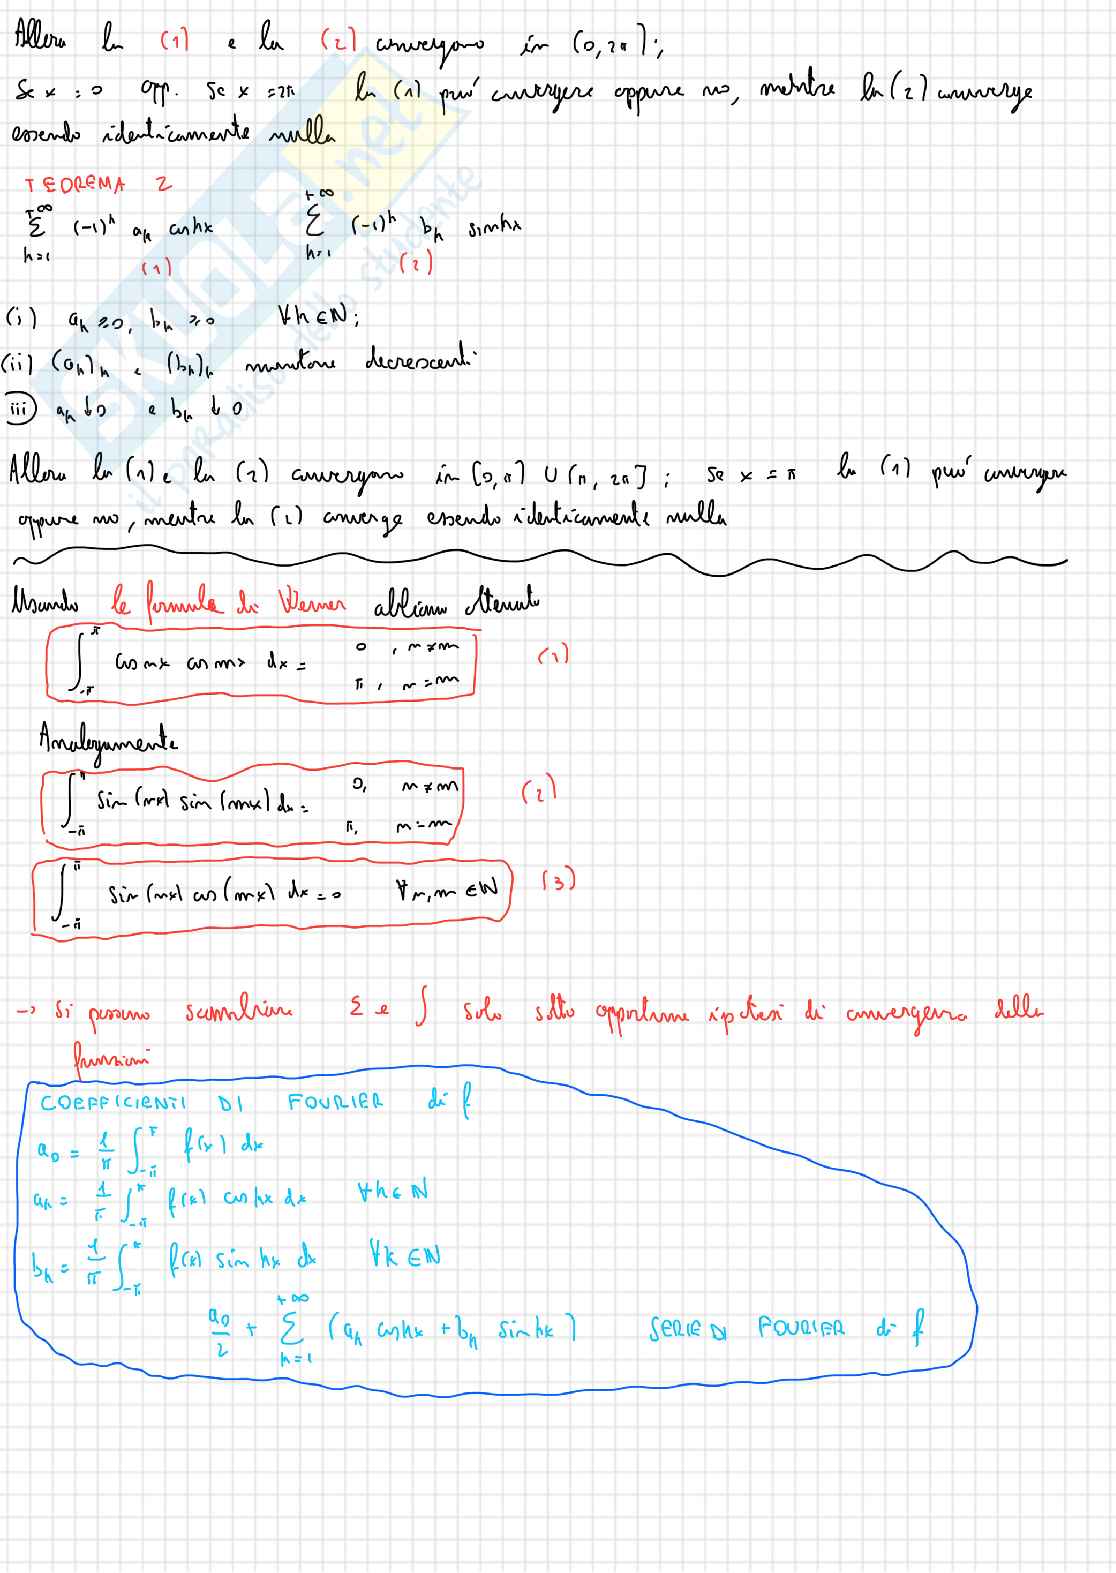 Allora la (1) e la (2) convergono in (0, 2π);
Se x = 0 opp. se x = 2π la (1) può convergere oppure no, mentre la (2) converge
essendo identicamente nulla
TEOREMA 2
+∞ Σ k=1 (-1)^k a_k cos kx (1) +∞ Σ k=1 (-1)^k b_k sin kx (2)
(i) a_k ≥ 0, b_k ≥ 0 ∀k ∈ ℕ;
(ii) (a_k)_k e (b_k)_k monotone decrescenti
(iii) a_k ↓ 0 e b_k ↓ 0
Allora la (1) e la (2) convergono in [0, π) ∪ (π, 2π]; se x = π la (1) può convergere
oppure no, mentre la (2) converge essendo identicamente nulla
Usando le formule di Werner abbiamo ottenuto
∫_{-π}^{π} cos nx cos mx dx = 0, n ≠ m (1)
π, n = m
Analogamente
∫_{-π}^{π} sin(nx) sin(mx) dx = 0, n ≠ m (2)
π, n = m
∫_{-π}^{π} sin(nx) cos(mx) dx = 0 ∀n, m ∈ ℕ (3)
→ Si possono scambiare Σ e ∫ solo sotto opportune ipotesi di convergenza delle
funzioni
COEFFICIENTI DI FOURIER di f
a_0 = 1/π ∫_{-π}^{π} f(x) dx
a_k = 1/π ∫_{-π}^{π} f(x) cos kx dx ∀k ∈ ℕ
b_k = 1/π ∫_{-π}^{π} f(x) sin kx dx ∀k ∈ ℕ
a_0/2 + Σ_{k=1}^{+∞} (a_k cos kx + b_k sin kx) SERIE DI FOURIER di f
SKUOLA.net
il paradiso dello studente